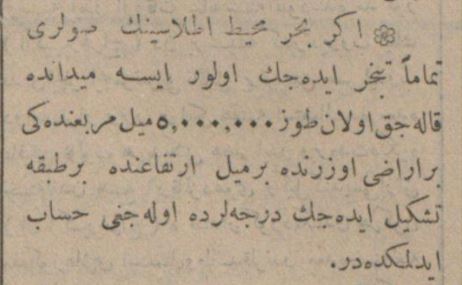 ❀ اكر بحر محيط اطلاسينك صولرى
تماماً تبخر ايده‌جك اولور ايسه ميدانده
قاله جق اولان طوز ٥,٠٠٠,٠٠٠ ميل مربعنده‌كى
بر اراضى اوزرنده بر ميل ارتفاعنده بر طبقه
تشكيل ايده‌جك درجه‌لرده اوله جغى حساب
ايدلمكده‌در.